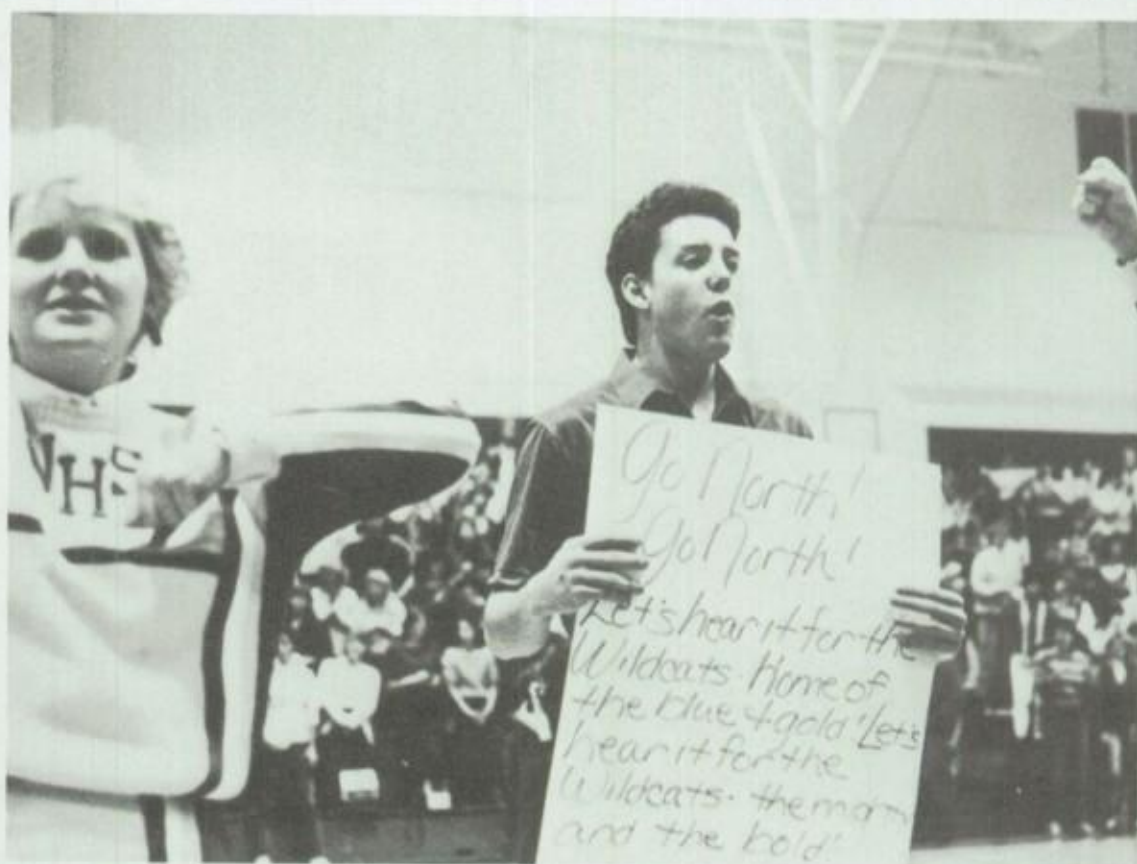 NHS
Go North!
Go North!
Let's hear it for the
Wildcats. Home of
the blue & gold! Let's
hear it for the
Wildcats. the
and the bold!